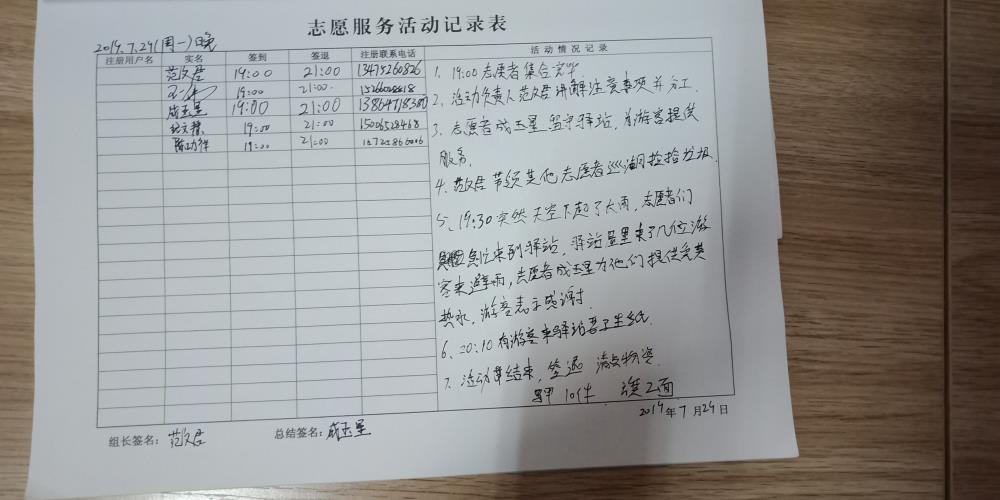 志愿服务活动记录表
2019.7.29(周一)晚
注册用户名 实名 签到 签退 注册联系电话 活动情况记录
范文君 19:00 21:00 13475260826
19:00 21:00
成玉星 19:00 21:00
19:00 21:00
19:00 21:00
1. 19:00志愿者集合完毕
2. 活动负责人范文君讲解注意事项并分工.
3. 志愿者成玉星留守驿站,为游客提供
服务.
4. 范文君带领其他志愿者巡湖捡拾垃圾.
5、19:30突然天空下起了大雨,志愿者们
急忙来到驿站,驿站里来了几位游
客来避雨,志愿者成玉星为他们提供免费
热水,游客表示感谢.
6、20:10有游客来驿站要了生纸.
7. 活动结束,签退 清点物资
10件 2面
2019年7月29日
组长签名: 范文君 总结签名: 成玉星